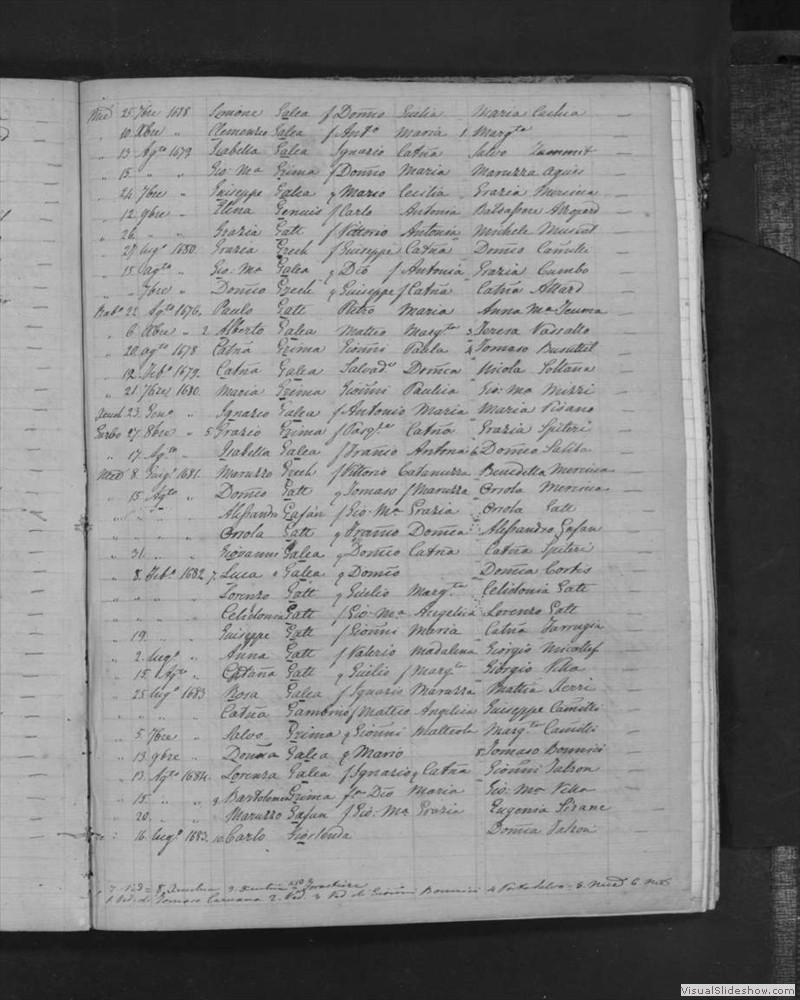 Med 25 7bre 1678 Simone Galea f Domco Giulia Maria Cachia
10 Xbre " Clemenzo Galea f Anto Maria 1 Margta
" 13 Agto 1679 Isabella Galea Ignazio Catna Salvo Zammit
" 15 " " Gio: Ma Grima f Domco Maria Maruzza Agius
" 24 7bre " Giuseppe Galea q Mario Cecilia Grazia Mercieca
" 12 9bre " Elena Genuis f Carlo Antonia Baldassare
" 26 " Grazia Gatt f Vittorio Antonia Michele Muscat
" 27 Lugo 1680 Grazia Grech f Giuseppe Catna Domco Camilli
" 15 Agto " Gio: Ma Galea q Dio f Antonia Grazia Cumbo
" " 7bre " Domco Grech q Giuseppe f Catna Catna Attard
Rabo 22 Agto 1676 Paulo Gatt Pietro Maria Anna Ma
" 6 Xbre " 2 Alberto Galea Matteo Margta 3 Teresa Vassallo
" 20 agto 1678 Catna Grima Gionni Paula 4 Tomaso Busuttil
" 19 Febo 1679 Catna Galea Salvadre Domca Nicola Soltana
" 21 7bre 1680 Maria Grima Gionni Paulica Gio: Ma Mizzi
23 Geno " Ignazio Galea f Antonio Maria Maria Pisano
Zurbo 27 8bre " 5 Grazio Grima f Pasqle Catna Grazia Spiteri
" 17 Agto " Isabella Galea f Franco Antona 6 Domco Saliba
Med 8 Giugo 1681 Maruzzo Grech f Vittorio Catanuzza Benedetta Mercieca
" 15 Agto " Domco Gatt q Tomaso f Maruzza Orsola Mercieca
" " " Alessandro Gafan f Gio: Ma Grazia Orsola Gatt
" " " Orsola Gatt q Franco Domca Alessandro Gafan
" 31 " " Giovanni Galea q Domco Catna Catna Spiteri
" 8 Febo 1682 7 Luca Galea q Domco Domca Cortis
" " " Lorenzo Gatt q Giulio Margta Celidonia Gatt
" " " Celidonia Gatt f Gio: Ma Angelica Lorenzo Gatt
" 19 " " Giuseppe Gatt f Gionni Maria Catna Farrugia
" 2 Lugo " Anna Gatt f Valerio Madalena Giorgio Micallef
" 15 Agto " Catna Gatt q Giulio f Margta Giorgio Vella
" 25 Lugo 1683 Rosa Galea f Ignazio Maruzza Mattia
" " " Catna f Matteo Angelica Giuseppe Camilli
" 5 7bre " Salvo Grima q Gionni Matteola Margta Camilli
" 13 9bre " Domca Galea q Mario 8 Tomaso Bonnici
" 13 Agto 1684 Lorenza Galea f Ignazio q Catna Gionni Falzon
" 15 " " 9 Bartolomeo Grima f Dio Maria Gio: Ma Vella
" 20 " " Maruzzo Gafan f Gio: Ma Grazia Eugenia
16 Lugo 1683 10 Carlo Domca Falzon
7 Ved 8
1 Ved: di Tomaso Caruana 2 Ved. 3 Ved di Gionni Bonnici 4 5 Med 6 Med
VisualSlideshow.com